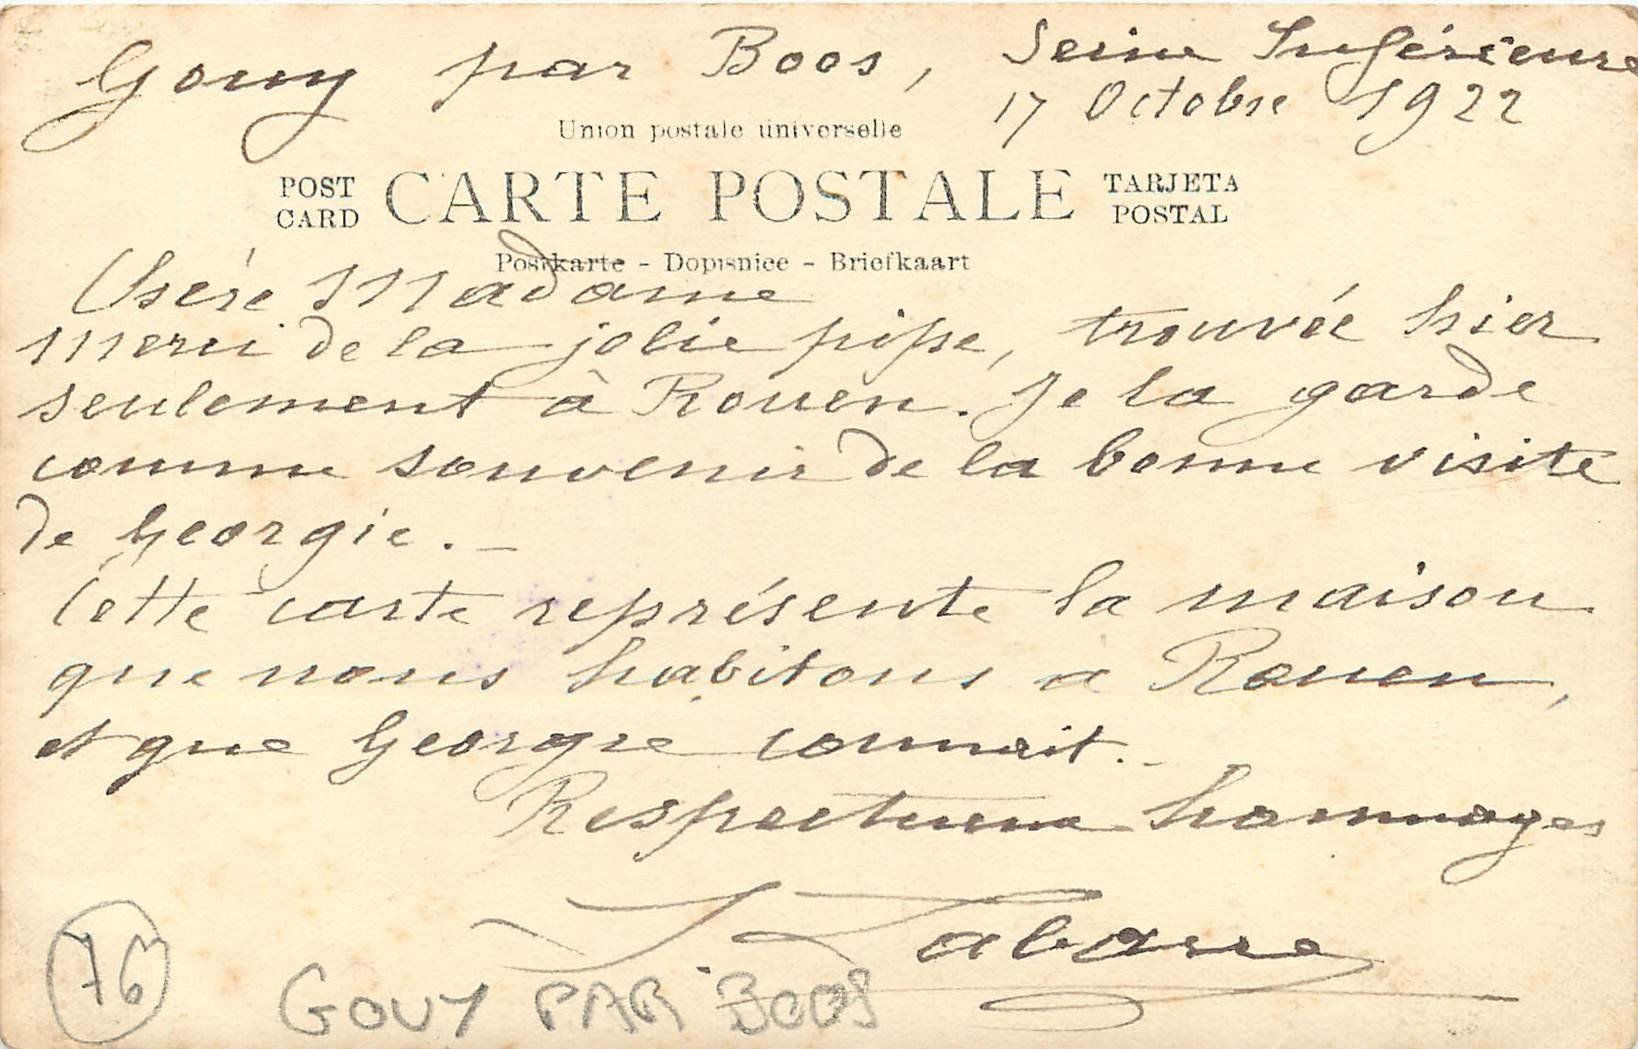 Gouy par Boos, Seine Inférieure
17 Octobre 1922
Union postale universelle
POST CARD CARTE POSTALE TARJETA POSTAL
Postkarte - Dopisnice - Briefkaart
Chère Madame
Merci de la jolie pipe, trouvée hier
seulement à Rouen. Je la garde
comme souvenir de la bonne visite
de Georgie. _
Cette carte représente la maison
que nous habitons à Rouen,
et que Georgie connait. _
Respectueux hommages
J. Labarre
76
GOUY PAR BOOS